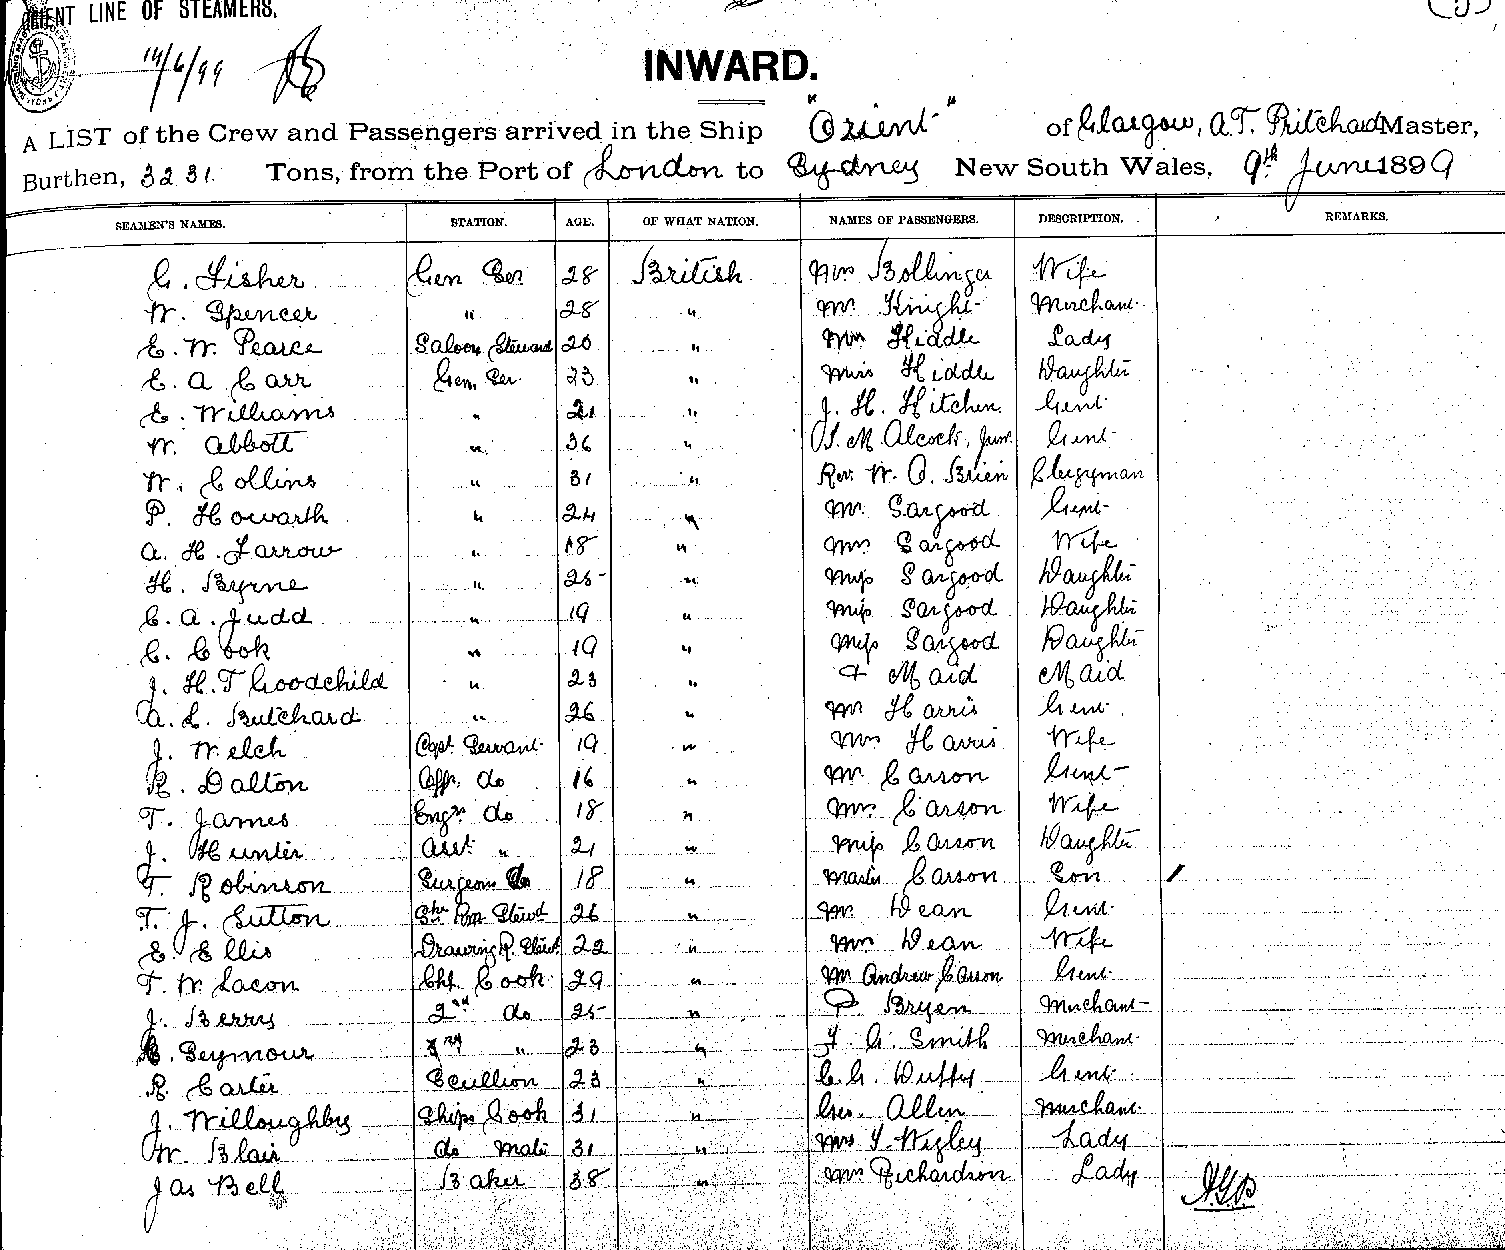 ORIENT LINE OF STEAMERS.
14/6/99
INWARD.
A LIST of the Crew and Passengers arrived in the Ship "Orient" of Glasgow, A.T. Pritchard Master,
Burthen, 3231 Tons, from the Port of London to Sydney New South Wales, 9th June 1899
SEAMEN'S NAMES. STATION. AGE. OF WHAT NATION. NAMES OF PASSENGERS. DESCRIPTION. REMARKS.
C. Fisher Gen Ser 28 British Mrs Bollinger Wife
W. Spencer " 28 " Mr Knight Merchant
E. W. Pearce Saloon Steward 20 " Mrs Hiddle Lady
E. A Carr Gen. Ser 23 " Miss Hiddle Daughter
E. Williams " 21 " J. H. Hitchen. Gent
W. Abbott " 36 " M. Alcock, Junr. Gent
W. Collins " 31 " Rev. W. O. Brien Clergyman
P. Howarth " 24 " Mr Sargood Gent
A. H. Farrow " 18 " Mrs Sargood Wife
H. Byrne " 25 " Miss Sargood Daughter
C. A. Judd " 19 " Miss Sargood Daughter
C. Cook " 19 " Miss Sargood Daughter
J. H. T Goodchild " 23 " + Maid Maid
A. E. Butchard " 26 " Mr Harris Gent
J. Welch Capt. Servant 19 " Mrs Harris Wife
R. Dalton Offr. do 16 " Mr Carson Gent
T. James Engrs do 18 " Mrs Carson Wife
J. Hunter Asst " 21 " Miss Carson Daughter
T. Robinson Surgeons do 18 " Master Carson Son
T. J. Sutton Rm Stewd 26 " Mr Dean Gent
E Ellis Drawing R. Stewd 22 " Mrs Dean Wife
T. W. Lacon Chf Cook 29 " Mr Andrew Carson Gent
J. Berry 2nd do 25 " P Bryen Merchant
Seymour 3rd " 23 " F A. Smith Merchant
R. Carter Scullion 23 " C. G. Duffy Gent
J. Willoughby Ships Cook 31 " Geo. Allen Merchant
W. Blair do Mate 31 " Mrs Wigley Lady
Jas Bell Baker 38 " Mrs Richardson Lady